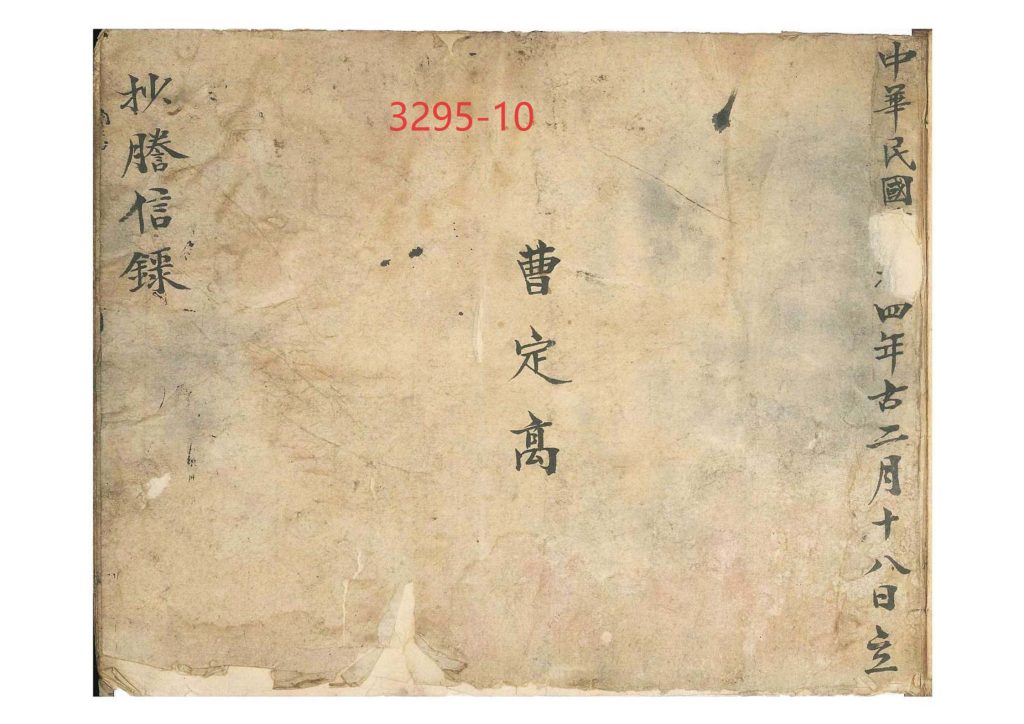 中華民國四年古二月十八日立
3295-10
曹定高
抄謄信録